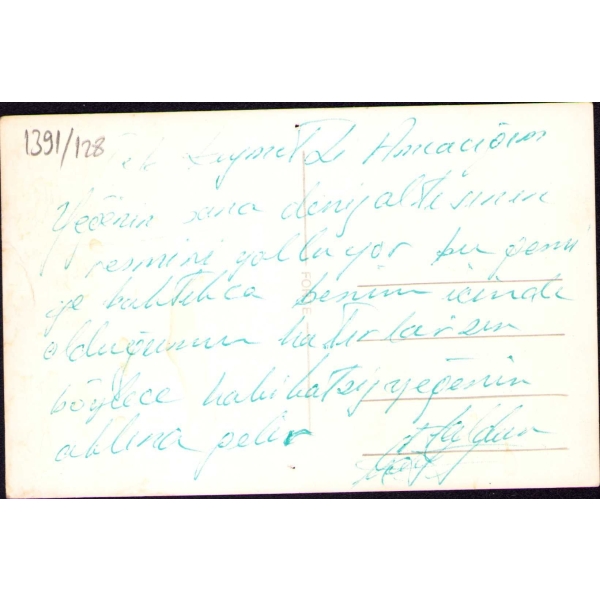 1391/128
Pek kıymetli Amcacığım
Yeğenin sana denizaltısının
resmini yolluyor bu gemi
ye baktıkca benim içinde
olduğumu hatırlarsın
böylece hakikatsiz yeğenin
aklına gelir
Haldun